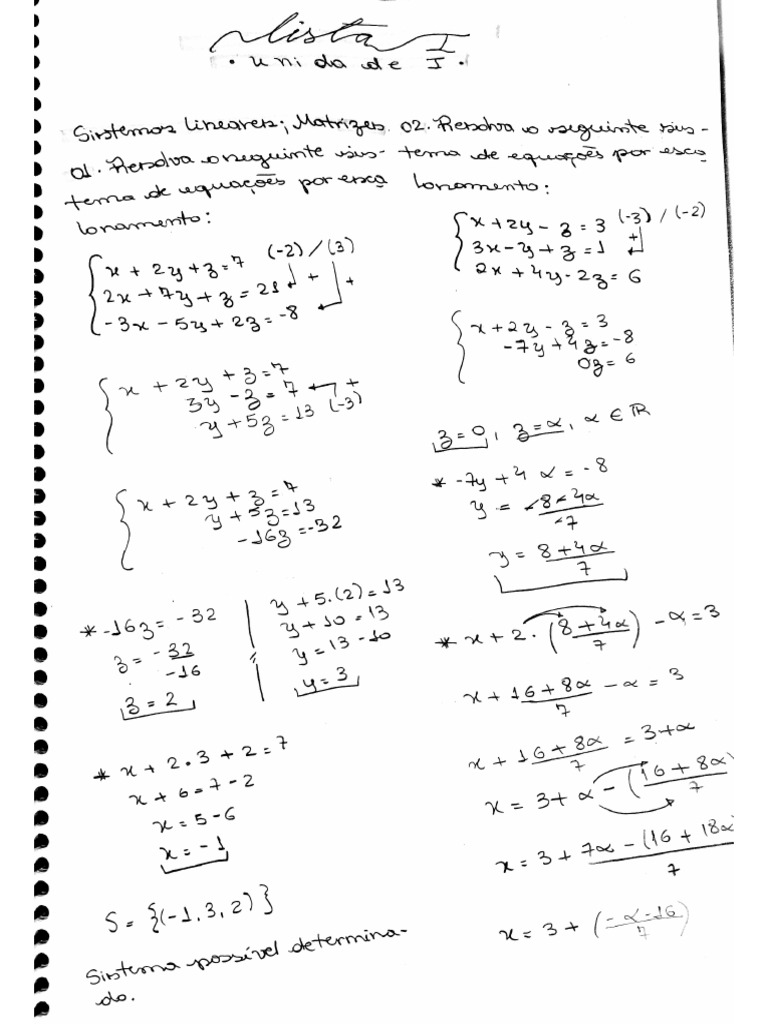 Lista I
• Unidade I •
Sistemas Lineares; Matrizes.
01. Resolva o seguinte sis-
tema de equações por esca
lonamento:
x + 2y + z = 7 (-2) / (3)
2x + 7y + z = 21 +
-3x - 5y + 2z = -8 +
x + 2y + z = 7
3y - z = 7 +
y + 5z = 13 (-3)
x + 2y + z = 7
y + 5z = 13
-16z = -32
* -16z = -32
z = -32/-16
z = 2
y + 5.(2) = 13
y + 10 = 13
y = 13 - 10
y = 3
* x + 2.3 + 2 = 7
x + 6 = 7 - 2
x = 5 - 6
x = -1
S = {(-1, 3, 2)}
Sistema possível determina-
do.
02. Resolva o seguinte sis-
tema de equações por esca
lonamento:
x + 2y - z = 3 (-3) / (-2)
3x - y + z = 1 +
2x + 4y - 2z = 6
x + 2y - z = 3
-7y + 4z = -8
0z = 6
z = 0, z = α, α ∈ IR
* -7y + 4α = -8
y = -8-4α/-7
y = 8+4α/7
* x + 2 . (8+4α/7) - α = 3
x + 16+8α/7 - α = 3
x + 16+8α/7 = 3+α
x = 3+α - (16+8α/7)
x = 3 + 7α - (16 + 18α)/7
x = 3 + (-α-16/7)